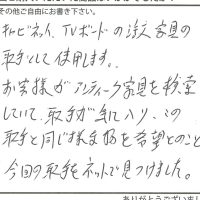 その他ご自由にお書き下さい。
キャビネット、TVボードの注文家具の
取手として使用します。
お客様がアンティーク家具を検索
していて、取手が気に入り、この
取手と同じ様な物を希望とのこと
今回の取手をネットで見つけました。
ありがとうございまし